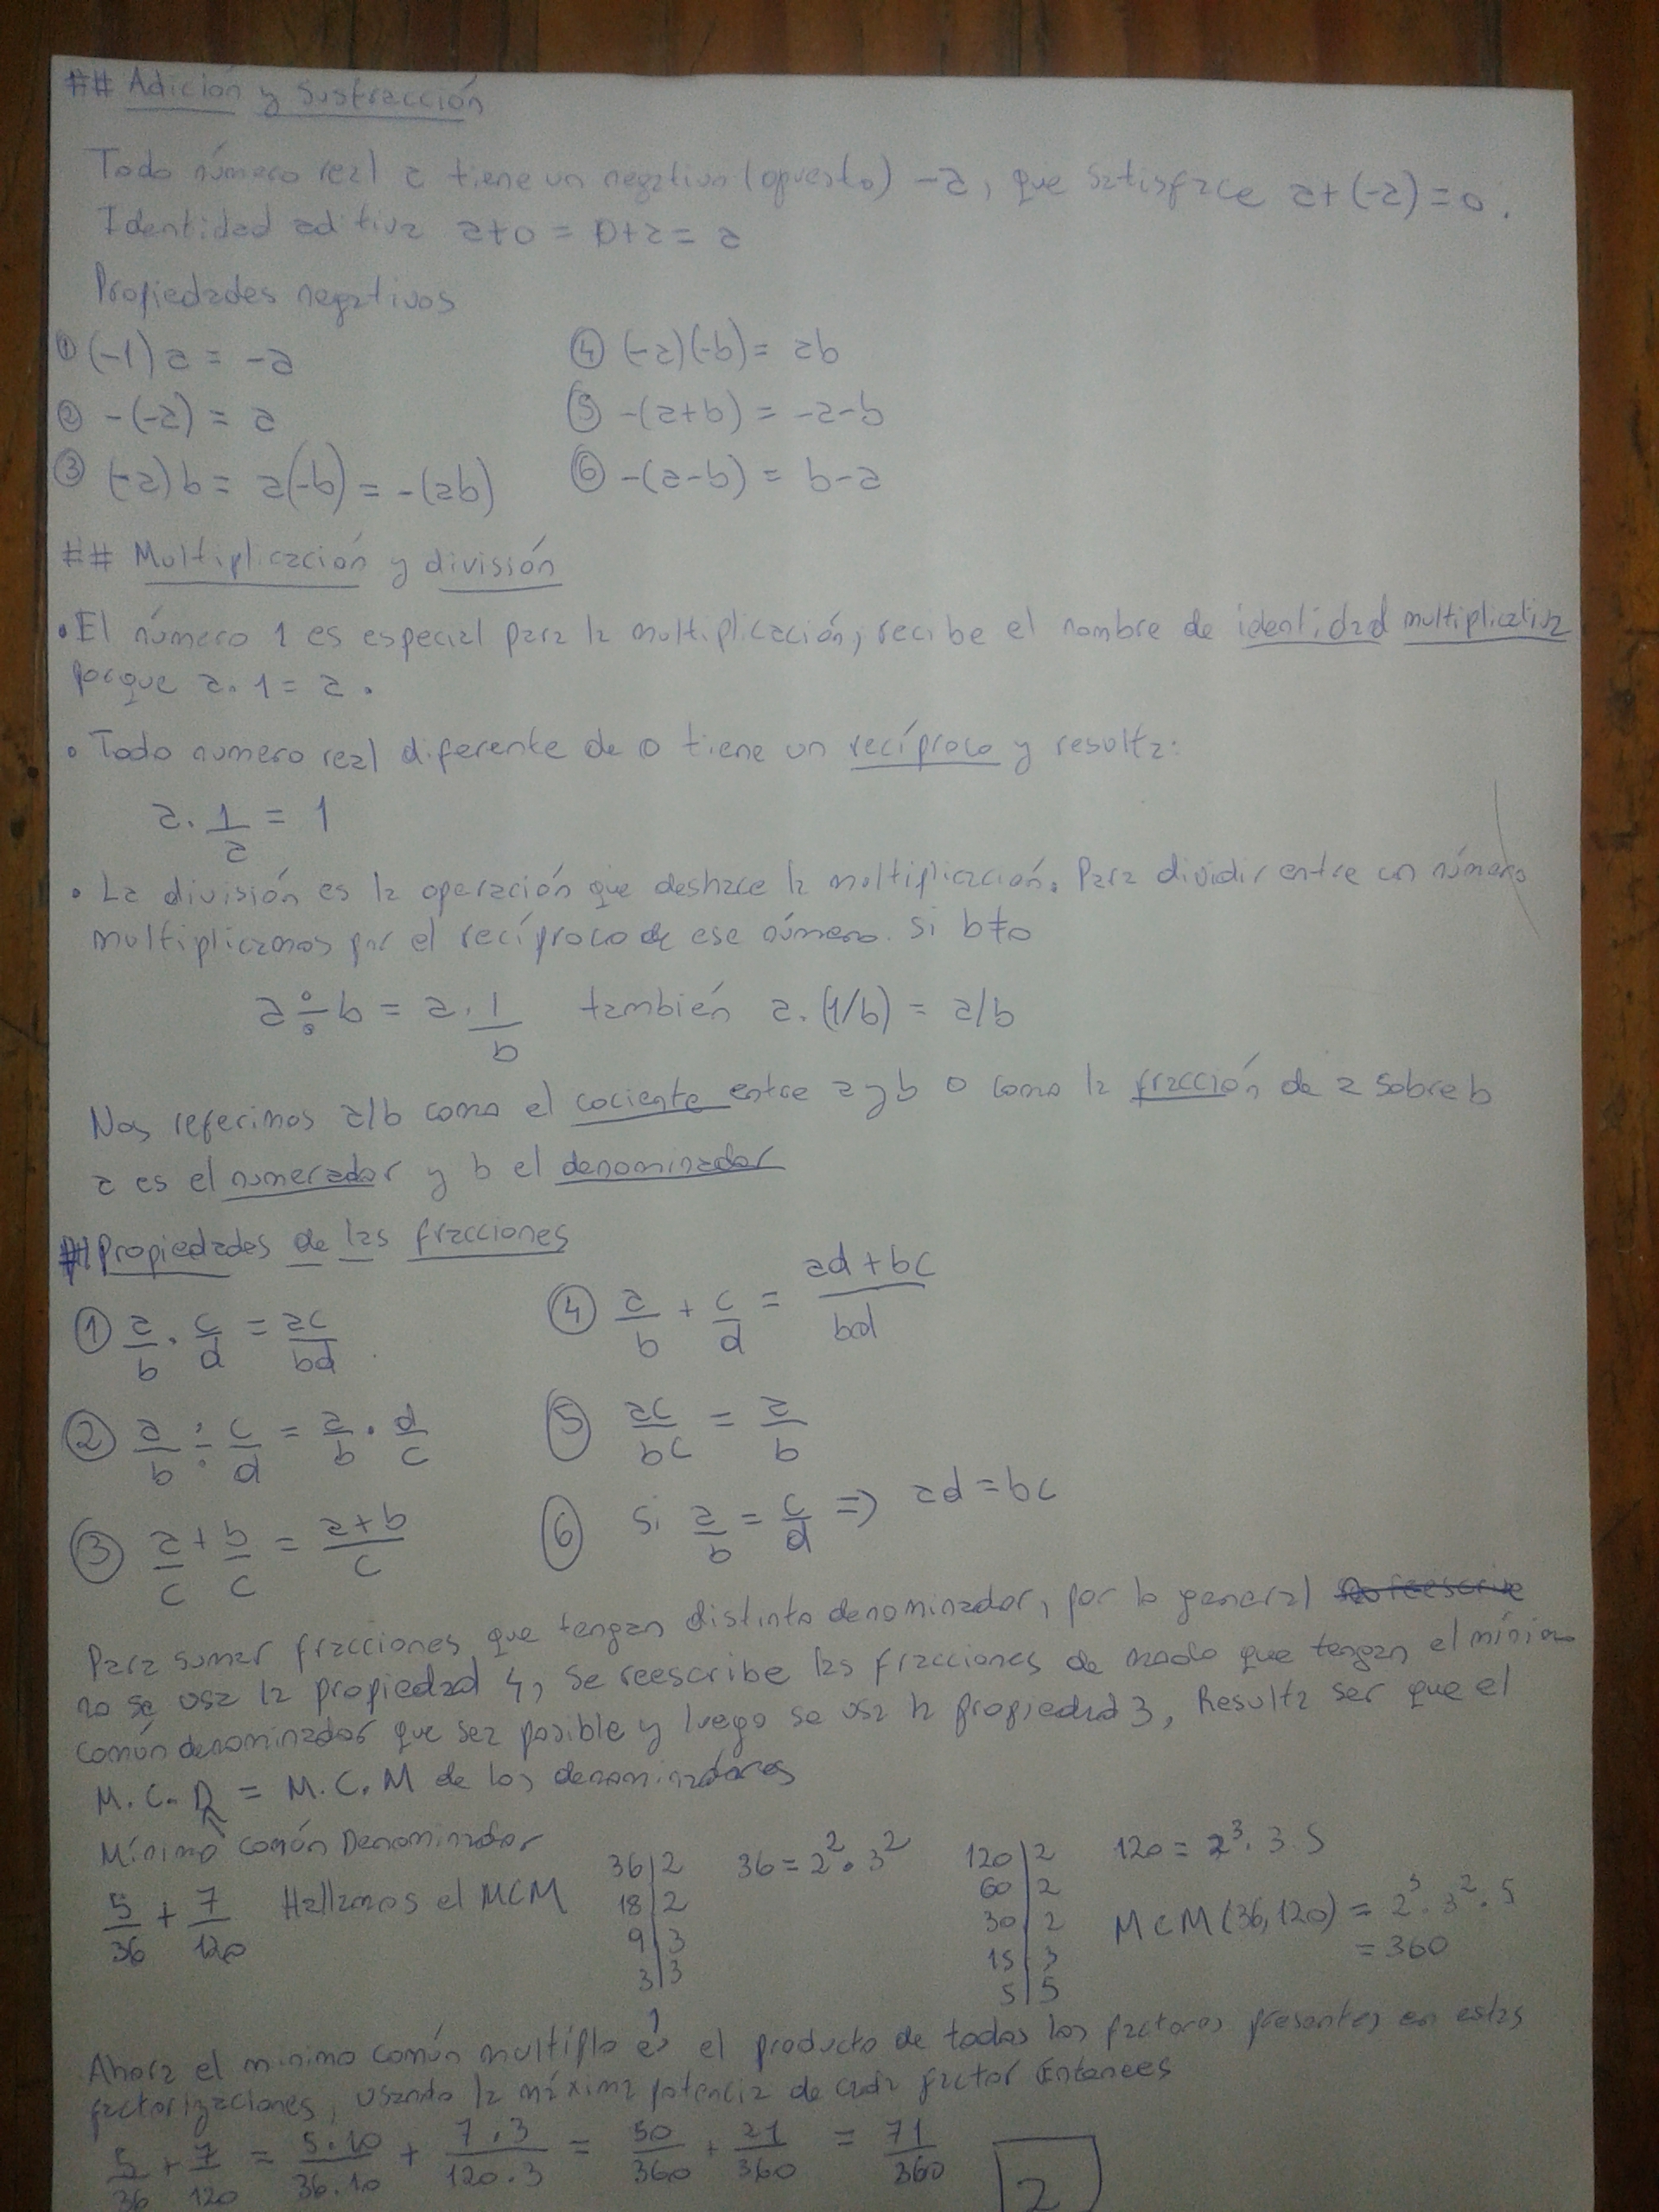 ## Adición y Sustracción
Todo número real a tiene un negativo (opuesto) -a, que satisface a+(-a)=0.
Identidad aditiva a+0 = 0+a = a
Propiedades negativos
① (-1)a = -a
② -(-a) = a
③ (-a)b = a(-b) = -(ab)
④ (-a)(-b) = ab
⑤ -(a+b) = -a-b
⑥ -(a-b) = b-a
## Multiplicación y división
• El número 1 es especial para la multiplicación, recibe el nombre de identidad multiplicativa
porque a.1 = a.
• Todo numero real diferente de 0 tiene un recíproco y resulta:
a. 1/a = 1
• La división es la operación que deshace la multiplicación. Para dividir entre un número
multiplicamos por el recíproco de ese número. Si b≠0
a ÷ b = a. 1/b también a.(1/b) = a/b
Nos referimos a/b como el cociente entre a y b o como la fracción de a sobre b
a es el numerador y b el denominador
## Propiedades de las fracciones
① a/b . c/d = ac/bd
② a/b ÷ c/d = a/b . d/c
③ a/c + b/c = a+b/c
④ a/b + c/d = ad+bc/bd
⑤ ac/bc = a/b
⑥ si a/b = c/d => ad=bc
Para sumar fracciones que tengan distinto denominador, por lo general
no se usa la propiedad 4, se reescribe las fracciones de modo que tengan el mínimo
común denominador que sea posible y luego se usa la propiedad 3, Resulta ser que el
M.C.D = M.C.M de los denominadores
Mínimo común Denominador
5/36 + 7/120 Hallamos el MCM
36|2
18|2
9|3
3|3
1
36 = 2².3²
120|2
60|2
30|2
15|3
5|5
120 = 2³.3.5
MCM(36,120) = 2³.3².5
= 360
Ahora el minimo común multíplo es el producto de todos los factores presentes en estas
factorizaciones, usando la máxima potencia de cada factor Entonces
5/36 + 7/120 = 5.10/36.10 + 7.3/120.3 = 50/360 + 21/360 = 71/360
2